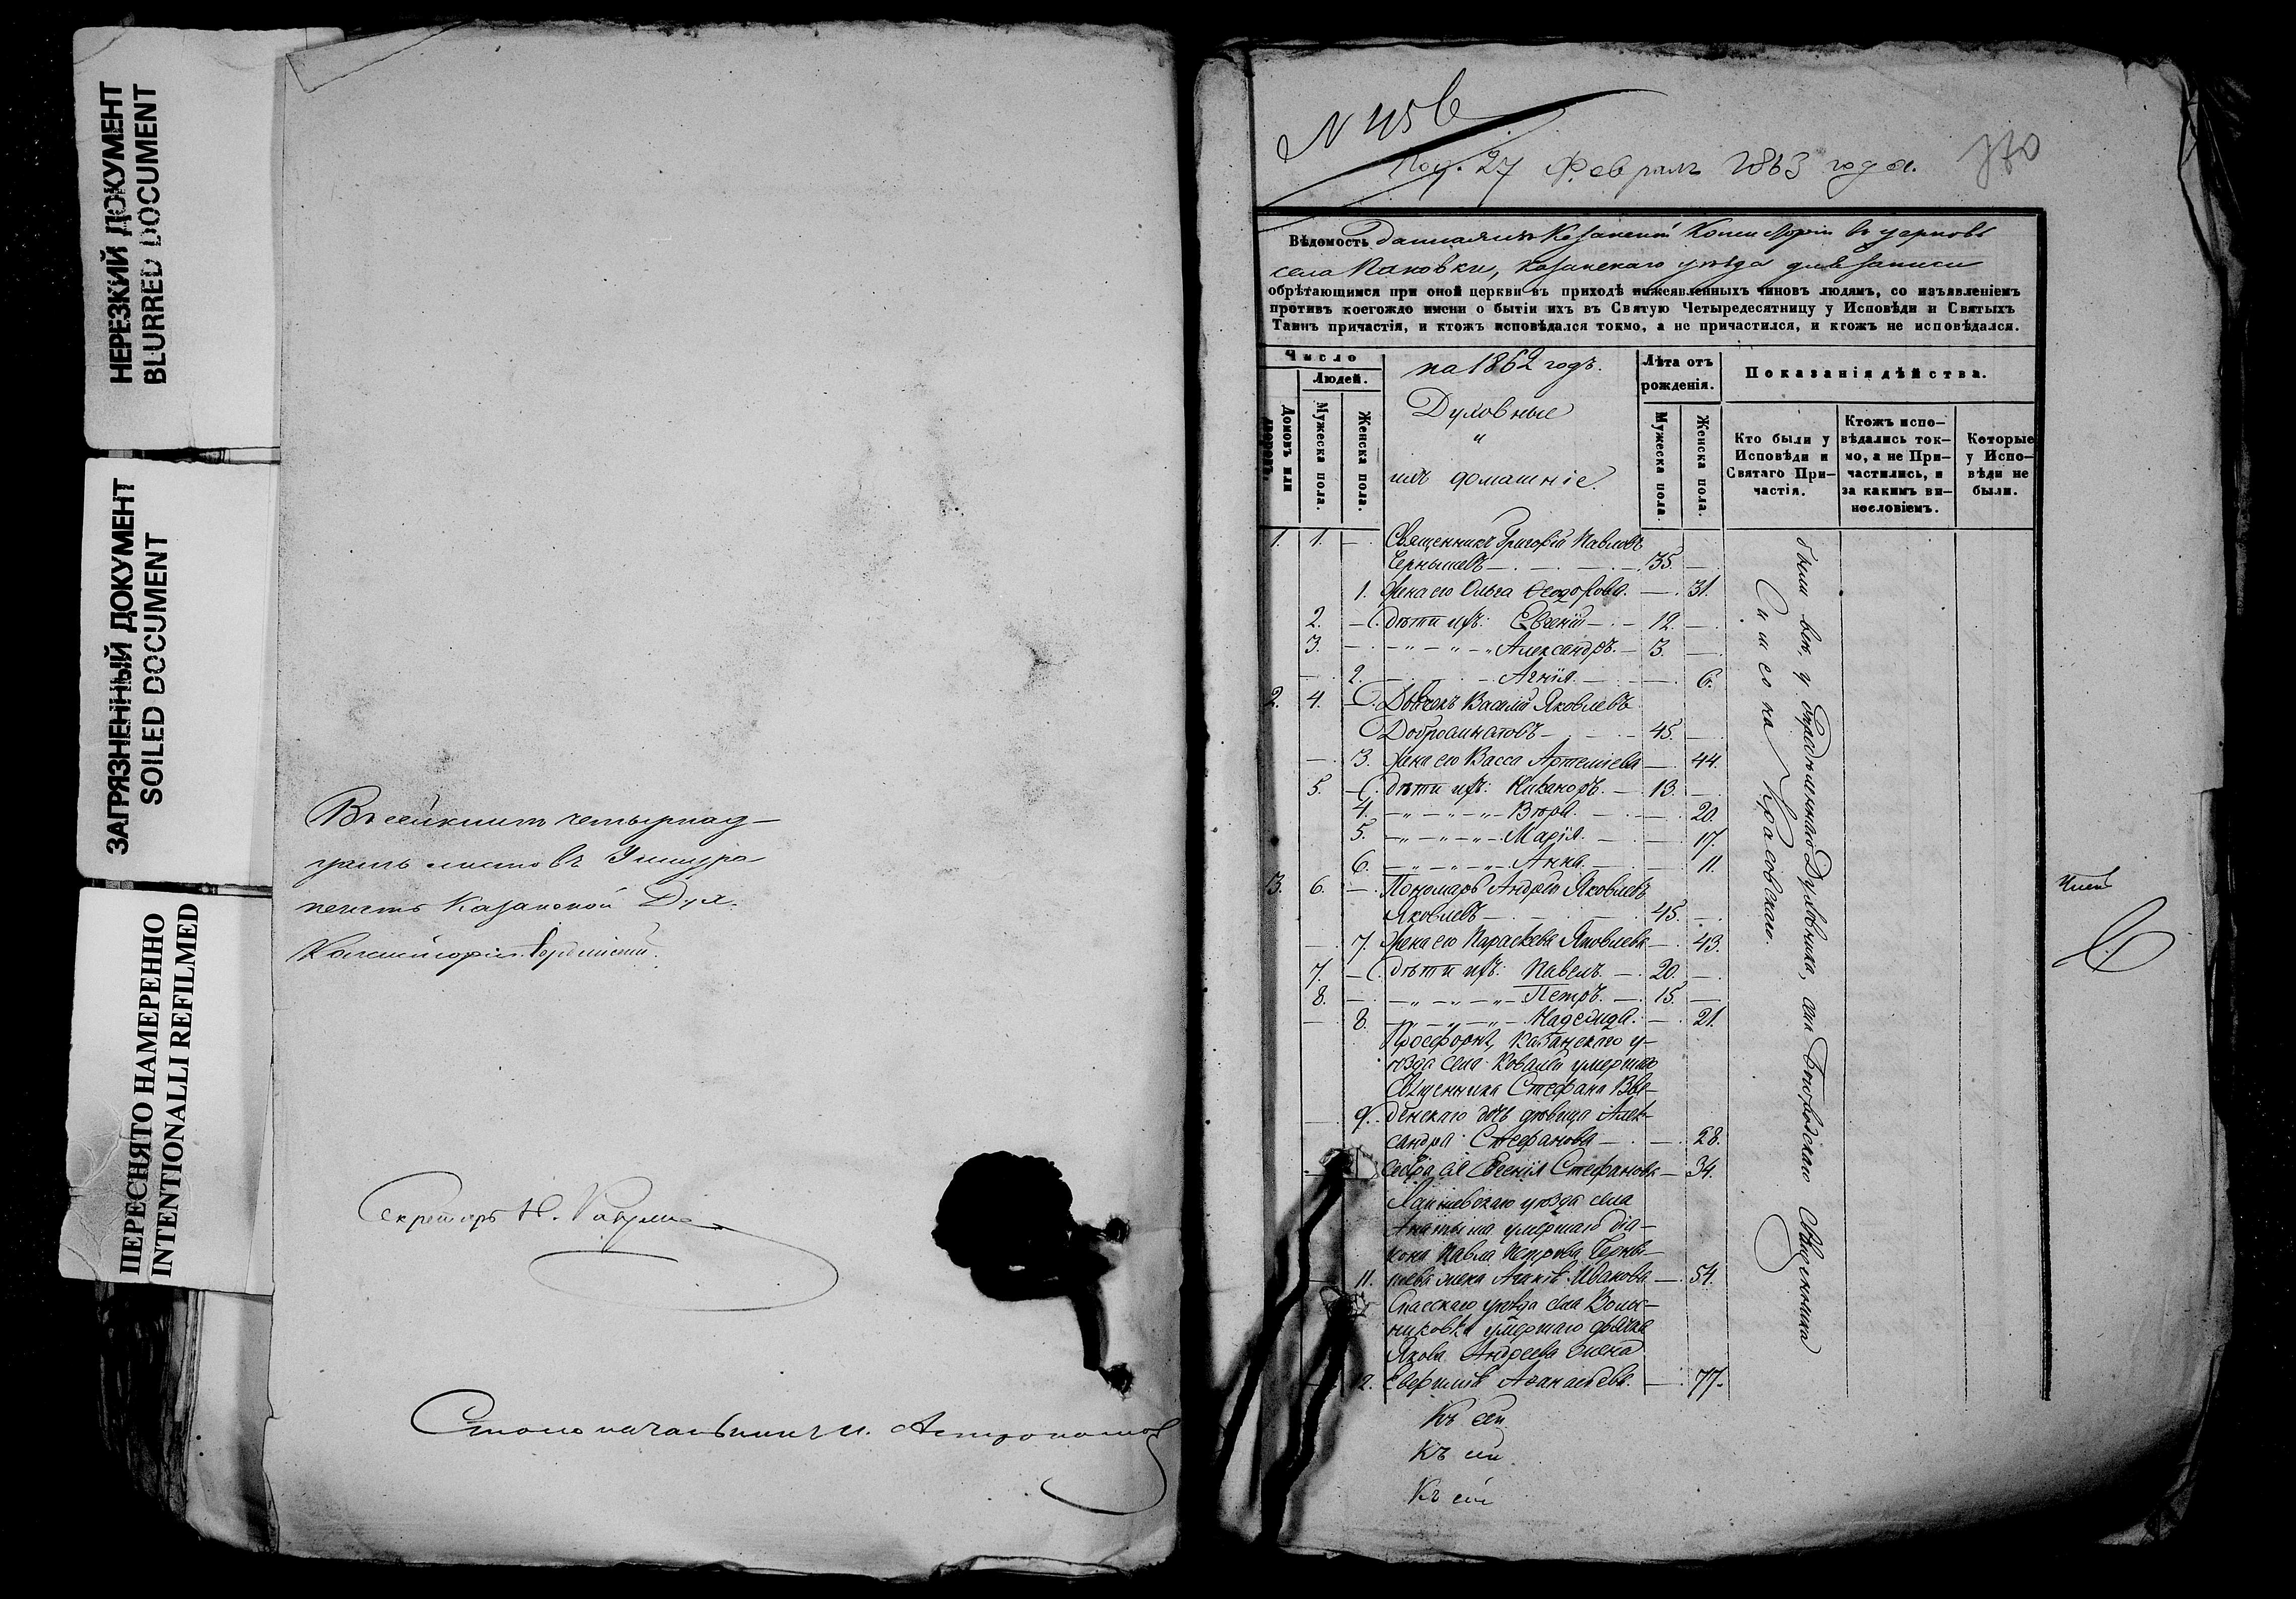 НЕРЕЗКИЙ ДОКУМЕНТ
BLURRED DOCUMENT
ЗАГРЯЗНЕННЫЙ ДОКУМЕНТ
SOILED DOCUMENT
ПЕРЕСНЯТО НАМЕРЕННО
INTENTIONALLI REFILMED
Въ сей книгѣ четырнад-
цать листовъ
печать Казанской Дух.
Консисторіи
Секретарь Н.
Столоначальникъ И.
N 456
Пол. 27 Февраля 1863 года.
370
Вѣдомость данная изъ Казанской Консисторіи въ церковь
села Пановки, Казанскаго уѣзда для записи
обрѣтающимся при оной церкви въ приходѣ нижеявленныхъ чиновъ людямъ, со изъявленіемъ
противъ коегождо имени о бытіи ихъ въ Святую Четыредесятницу у Исповѣди и Святыхъ
Таинъ причастія, и ктожъ исповѣдался токмо, а не причастился, и ктожъ не исповѣдался.
Число
Домовъ или дворовъ.
Людей.
Мужеска пола.
Женска пола.
на 1862 годъ.
Духовные
и
ихъ домашніе.
Лѣта отъ
рожденія.
Мужеска пола.
Женска пола.
Показанія дѣйства.
Кто были у
Исповѣди и
Святаго При-
частія.
Ктожъ испо-
вѣдались ток-
мо, а не При-
частились, и
за какимъ ви-
нословіемъ.
Которые
у Испо-
вѣди не
были.
1. 1. — Священникъ Григорій Павловъ
Чернышевъ — 35. —
1. Жена его Ольга Ѳеодорова. — 31.
2. — Дѣти ихъ: Евгеній — 12. —
3. — Александръ. — 3. —
— 2. Агнія. — 6.
2. 4. — Дьячекъ Василій Яковлевъ
45. —
— 3. Жена его Васса Артемьева — 44.
5. — Дѣти ихъ: Никаноръ. — 13. —
4. Вѣра. — 20.
5. Марія. — 17.
6. Анна. — 11.
3. 6. — Пономарь Андрей Яковлевъ
Яковлевъ — 45. —
— 7. Жена его Параскева Яковлева — 43.
7. — Дѣти ихъ: Павелъ. — 20. —
8. — Петръ. — 15. —
— 8. Надежда. — 21.
Просфорня, Казанскаго у-
ѣзда села Ковалей умершаго
Священника Стефана Вве-
— 9. денскаго дочь дѣвица Алек-
сандра Стефанова — 28.
Сестра ея Евгенія Стефанова — 34.
Лаишевскаго уѣзда села
умершаго діа-
кона Павла Петрова Черны-
— 11. шева жена Иванова — 54.
Спасскаго уѣзда села
умершаго дьячка
Якова Андреева жена
12. Аѳанасьева. — 77.
были всѣ у Духовника, села Священника
Симеона Красовскаго.
Къ сей
Къ сей
Къ сей